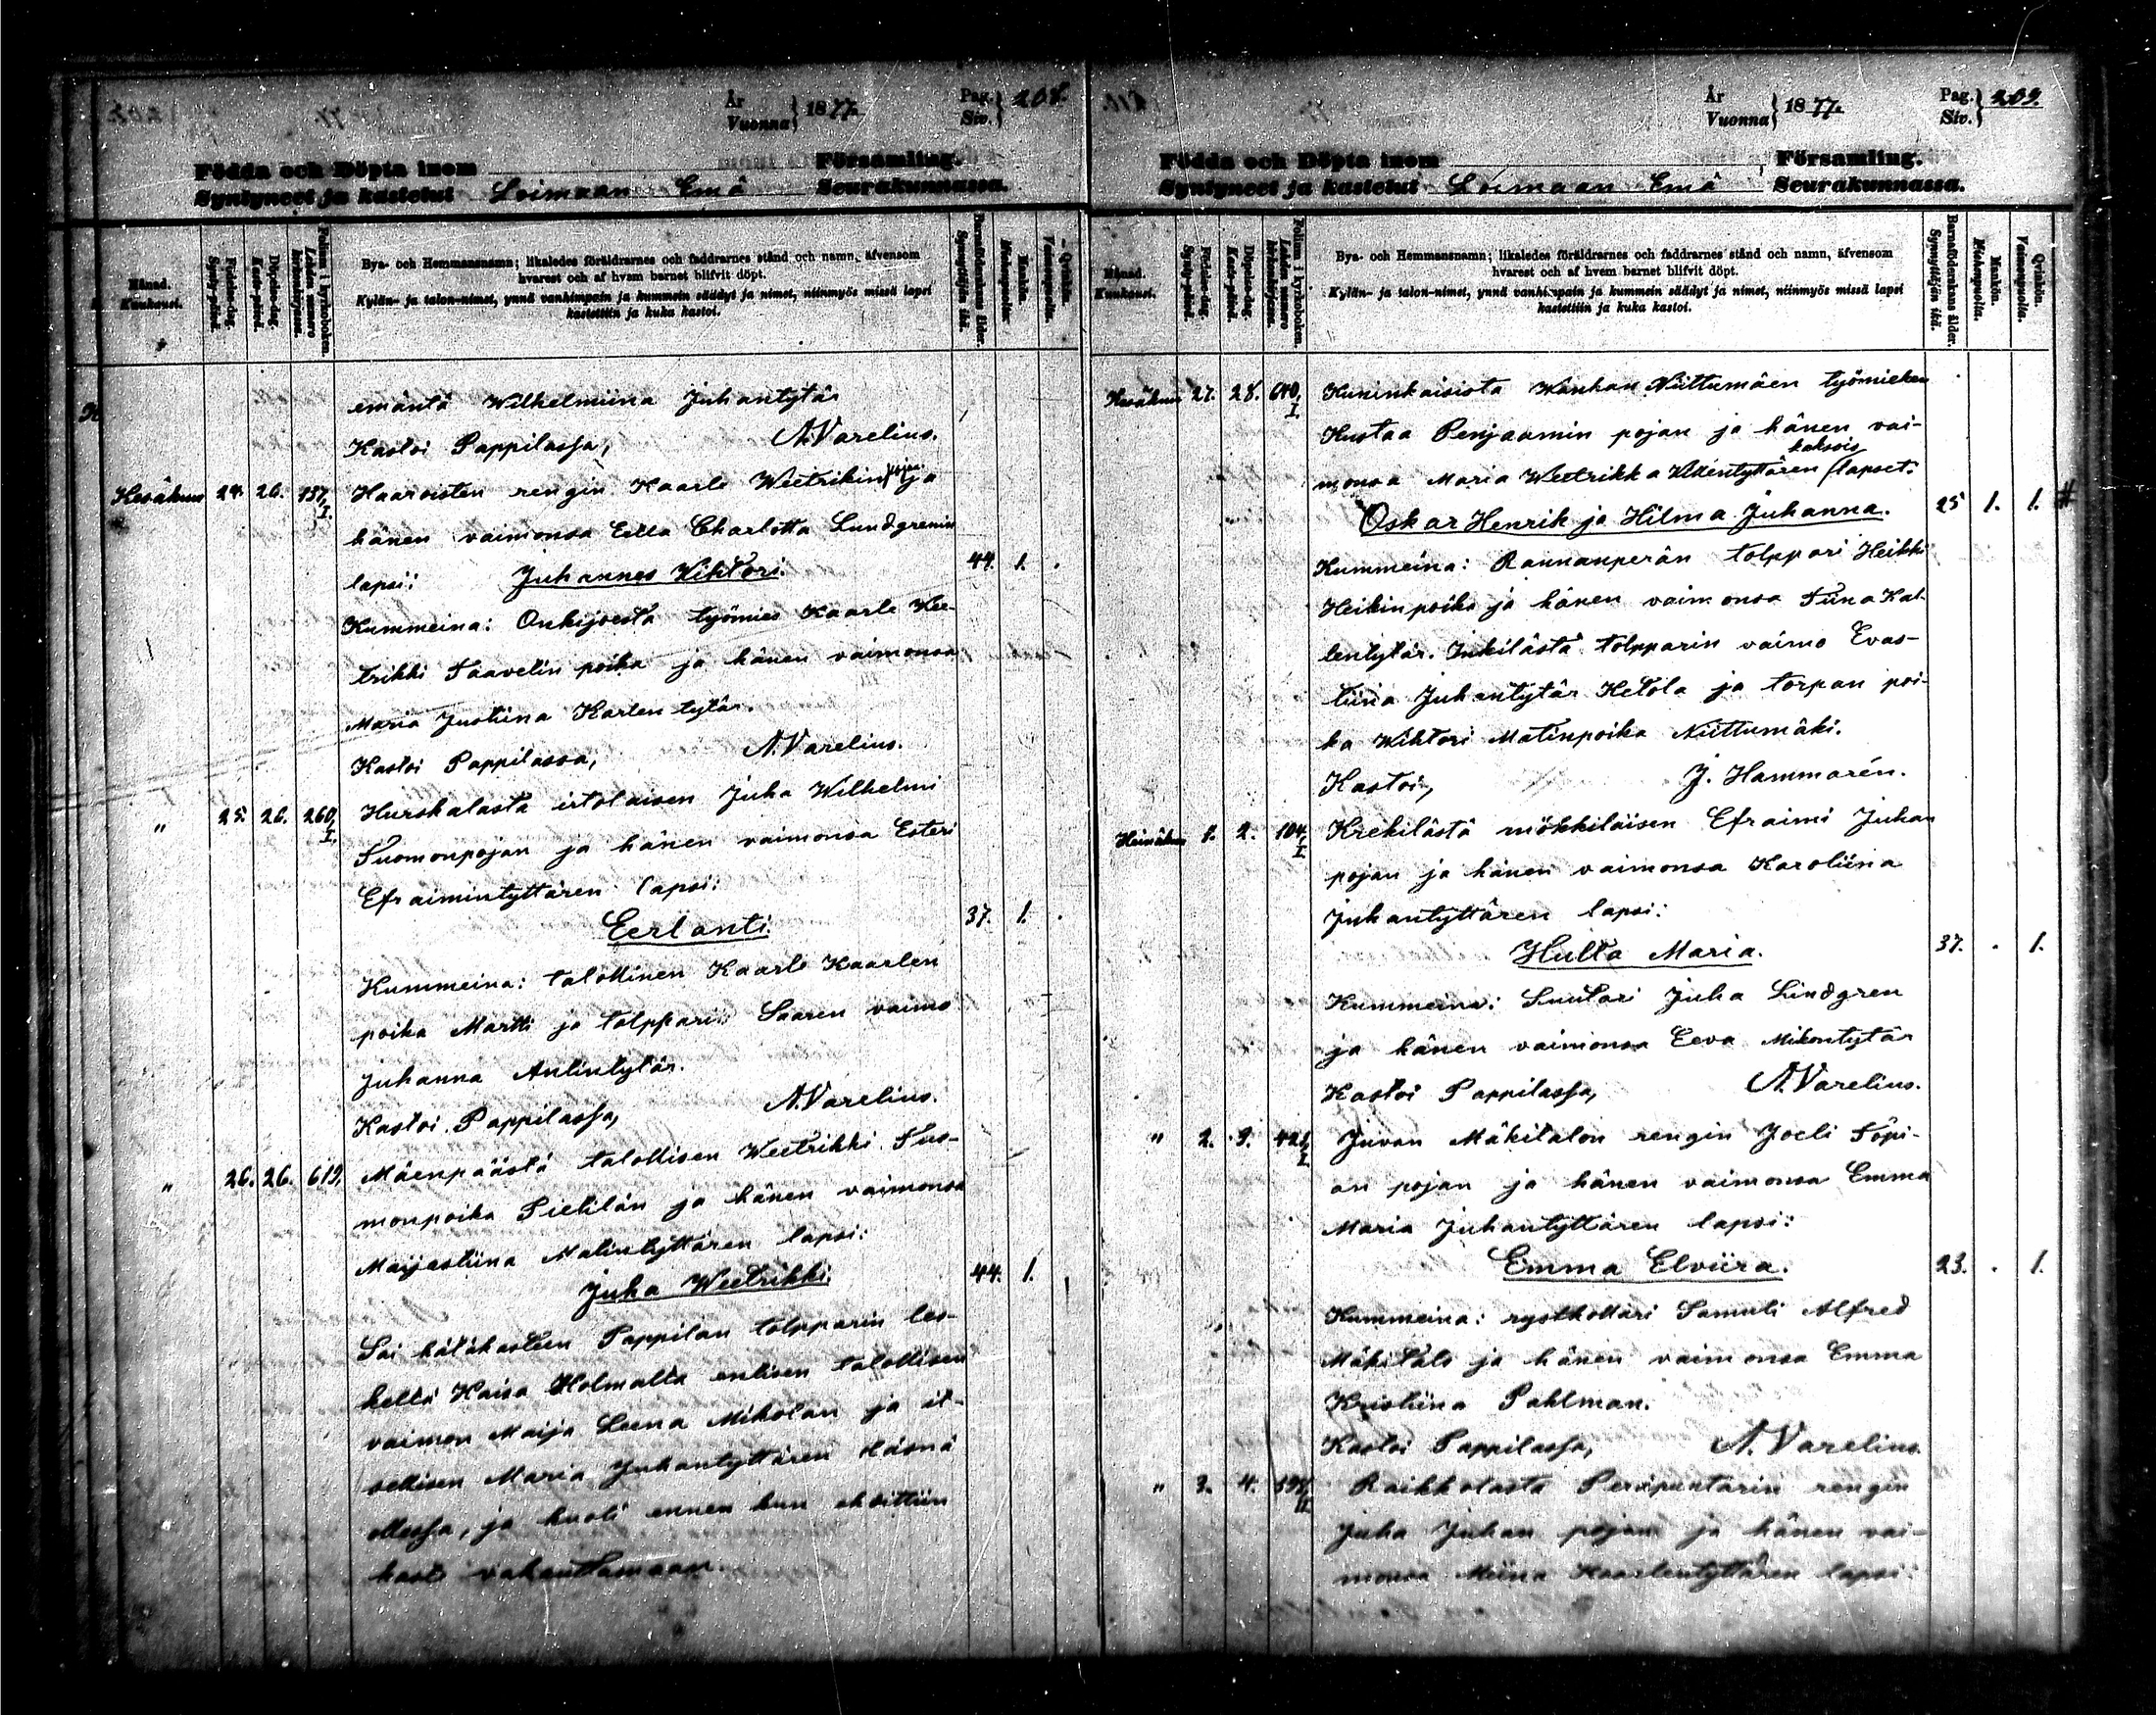 År
Vuonna } 1877.
Pag.
Siv. } 208.
Födda och Döpta inom Församling.
Syntyneet ja kastetut Loimaan Emä Seurakunnassa.
Månad.
Kuukausi.
Födelse-dag.
Synty-päivä.
Döpelse-dag.
Kaste-päivä.
Folium i kyrkoboken.
Lehden numero kirkonkirjassa.
Bya- och Hemmansnamn; likaledes föräldrarnes och faddrarnes stånd och namn, äfvensom
hvarest och af hvem barnet blifvit döpt.
Kylän- ja talon-nimet, ynnä vanhimpain ja kummein säädyt ja nimet, niinmyös missä lapsi
kastettiin ja kuka kastoi.
Barnaföderskans ålder.
Synnyttäjän ikä.
Mankön.
Miehenpuolia.
Qvinkön.
Vaimonpuolia.
emäntä Wilhelmiina Juhantytär
Kastoi Pappilassa, A. Varelius.
Kesäkuu 24. 26. 137, I. Haaroisten rengin Kaarle Weetrikin pojan ja
hänen vaimonsa Eella Charlotta Lundgrenin
lapsi: Juhannes Wihtori. 44. 1. .
Kummeina: Onkijoesta työmies Kaarle Wee-
trikki Taavelin poika ja hänen vaimonsa
Maria Justiina Karlen tytär.
Kastoi Pappilassa, A. Varelius.
" 25. 26. 260, I. Hurskalasta irtolaisen Juha Wilhelmi
Tuomonpojan ja hänen vaimonsa Esteri
Efraimintyttären lapsi:
Eerlanti. 37. 1. .
Kummeina: talollinen Kaarle Kaarlen
poika Martti ja tolpparin Saaren vaimo
Juhanna Antintytär.
Kastoi Pappilassa, A. Varelius.
" 26. 26. 619, Mäenpäästä talollisen Weetrikki Tuo-
monpoika Pietilän ja hänen vaimonsa
Maijastiina Matintyttären lapsi:
Juha Weetrikki. 44. 1.
Sai hätäkasteen Pappilan tolpparin les-
keltä Kaisa Holmalta entisen talollisen
vaimon Maija Leena Mikolan ja it-
sellisen Maria Juhantyttären läsnä
ollessa, ja kuoli ennen kun ehdittiin
kaste vahvittamaan.
År
Vuonna } 1877.
Pag.
Siv. } 209.
Födda och Döpta inom Församling.
Syntyneet ja kastetut Loimaan Emä Seurakunnassa.
Månad.
Kuukausi.
Födelse-dag.
Synty-päivä.
Döpelse-dag.
Kaste-päivä.
Folium i kyrkoboken.
Lehden numero kirkonkirjassa.
Bya- och Hemmansnamn; likaledes föräldrarnes och faddrarnes stånd och namn, äfvensom
hvarest och af hvem barnet blifvit döpt.
Kylän- ja talon-nimet, ynnä vanhimpain ja kummein säädyt ja nimet, niinmyös missä lapsi
kastettiin ja kuka kastoi.
Barnaföderskans ålder.
Synnyttäjän ikä.
Mankön.
Miehenpuolia.
Qvinkön.
Vaimonpuolia.
Kesäkuu 27. 28. 640, I. Kuninkaisista Wanhan Niittumäen työmiehen
Kustaa Penjaamin pojan ja hänen vai-
monsa Maria Weetrikka tyttären kaksois lapset:
Oskar Henrik ja Hilma Juhanna. 25 1. 1. #
Kummeina: Rannanperän tolppari Heikki
Heikinpoika ja hänen vaimonsa Tiina Kal-
lentytär. Inkilästä tolpparin vaimo Evas-
tiina Juhantytär Ketola ja torpan poi-
ka Wihtori Matinpoika Niittumäki.
Kastoi, J. Hammarén.
Heinäkuu 1. 2. 104, I. Krekilästä mökkiläisen Efraimi Juhan
pojan ja hänen vaimonsa Karoliina
Juhantyttären lapsi:
Hulta Maria. 37. . 1.
Kummeina: Suutari Juha Lindgren
ja hänen vaimonsa Eeva Mikontytär
Kastoi Pappilassa, A. Varelius.
" 2. 3. 421, I Juvan Mäkitalon rengin Joeli Töpi-
an pojan ja hänen vaimonsa Emma
Maria Juhantyttären lapsi:
Emma Elviira. 23. . 1.
Kummeina: rystkollari Samuli Alfred
Mäkitalo ja hänen vaimonsa Emma
Kristiina Pahlman.
Kastoi Pappilassa, A. Varelius.
" 3. 4. II Raikkolasta Persipuntarin rengin
Juha Juhan pojan ja hänen vai-
monsa Miina Kaarlentyttären lapsi: